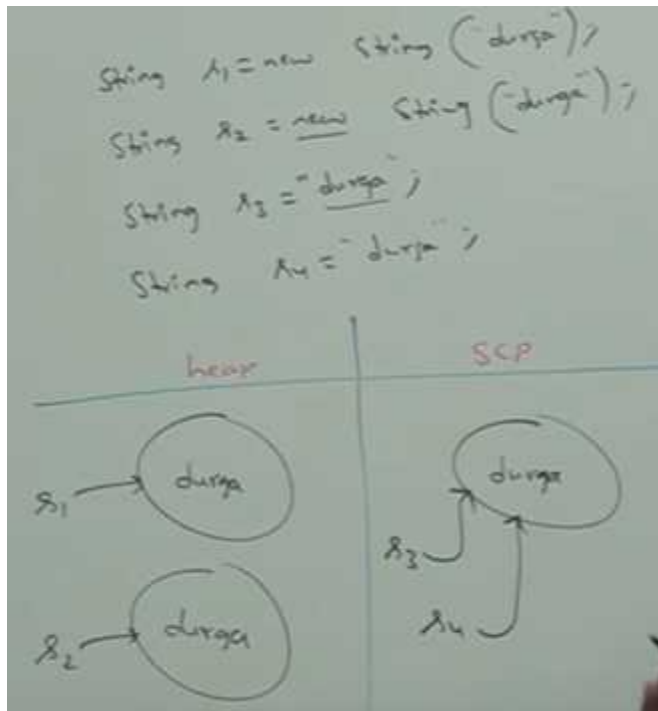 String s1 = new String("durga");
String s2 = new String("durga");
String s3 = "durga";
String s4 = "durga";
heap SCP
s1 durga durga
s3
s2 durga s4